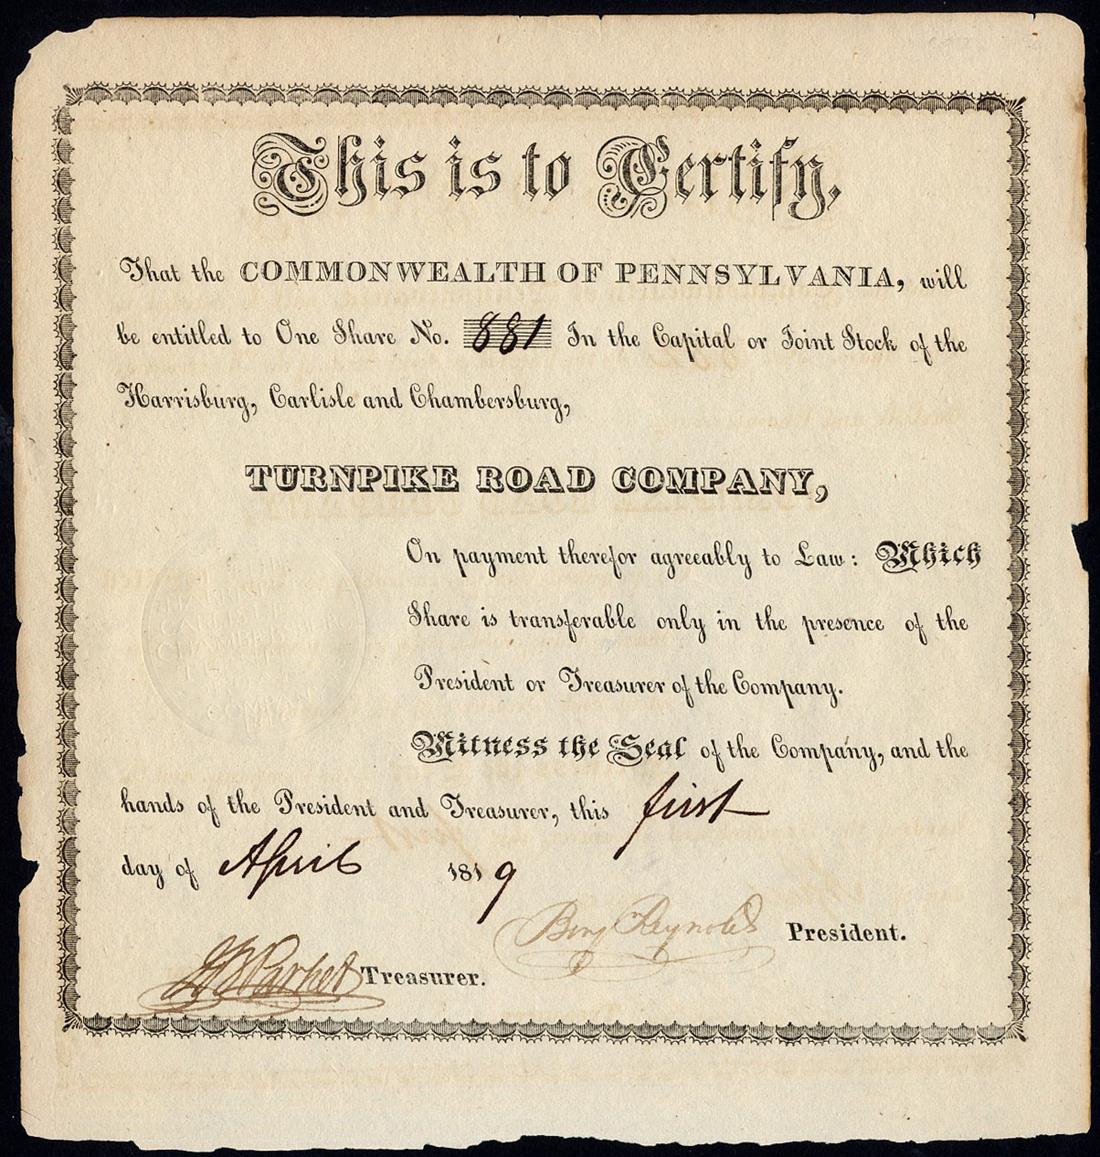 This is to Certify,
That the COMMONWEALTH OF PENNSYLVANIA, will
be entitled to One Share No. 881 In the Capital or Joint Stock of the
Harrisburg, Carlisle and Chambersburg,
TURNPIKE ROAD COMPANY,
On payment therefor agreeably to Law: Which
Share is transferable only in the presence of the
President or Treasurer of the Company.
Witness the Seal of the Company, and the
hands of the President and Treasurer, this first
day of April 1819
Benj Reynolds President.
Treasurer.